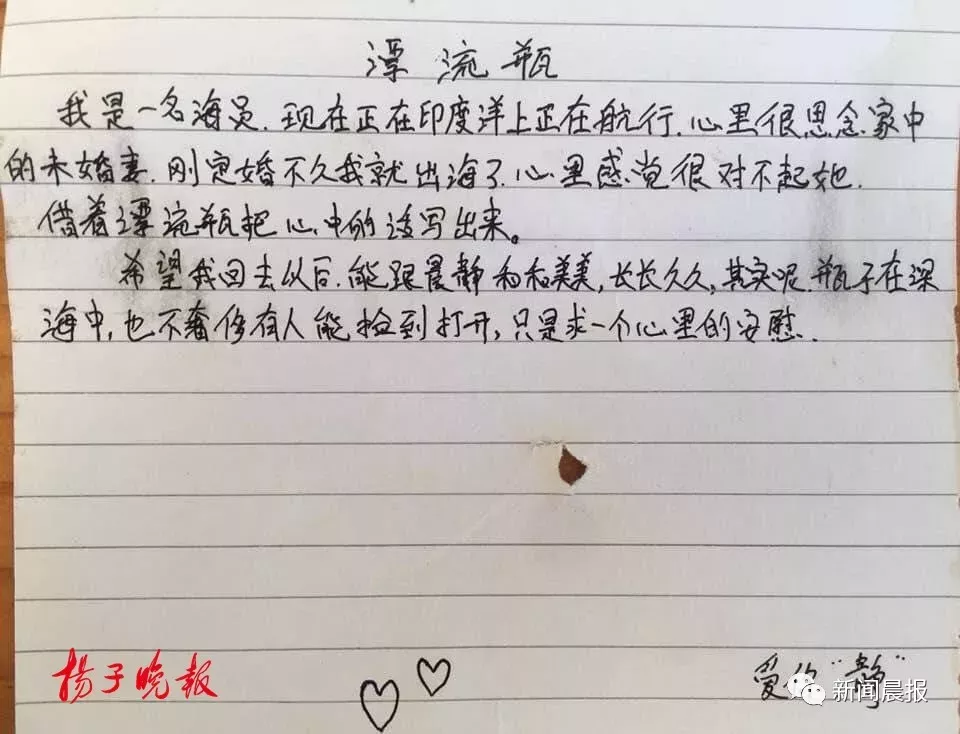 漂流瓶
我是一名海员.现在正在印度洋上正在航行.心里很思念家中
的未婚妻.刚定婚不久我就出海了.心里感觉很对不起她.
借着漂流瓶把心中的话写出来。
希望我回去以后.能跟晨静和和美美,长长久久,其实呢.瓶子在深
海中,也不奢侈有人能捡到打开,只是求一个心里的安慰.
扬子晚报
爱你"静"
新闻晨报